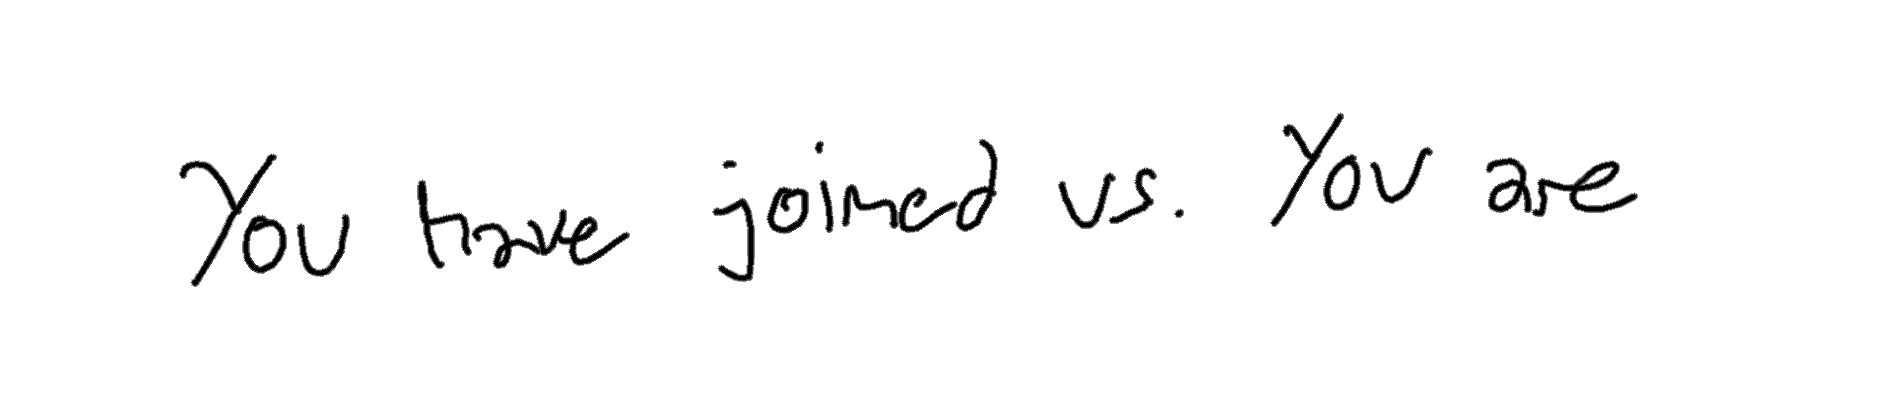 You have joined us. You are